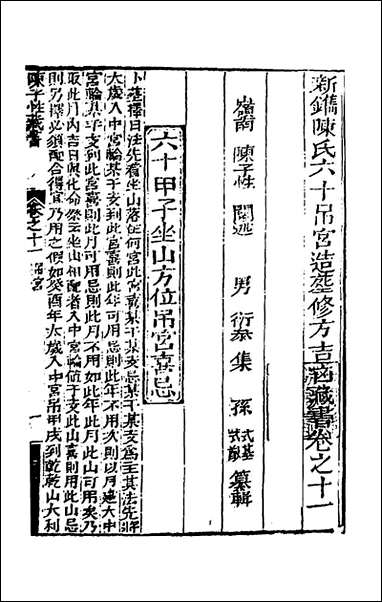 新鐫陳氏六十吊宮造塟修方吉凶藏書卷之十一
嶺南 陳子性 閱述 男 衍泰 集 孫 式基 式猷 纂輯
六十甲子坐山方位吊宮喜忌
卜塟擇日法先看坐山落在何宮此宮喜某干某支忌某干某支爲主其法先將
太歲入中宮輪某干支到此宮喜則此年可用忌則此年不用次則以月建入中
宮輪某干支到此宮喜則此月可用忌則此月不用如此年此月此山可用矣乃
取此月內吉日與化命祭主坐山相配者入中宮輪値干支此山喜則用此山忌
則另擇必須配合得宜乃用之假如癸酉年太歲入中宮吊甲戌到乾乾山大利
陳子性藏書
卷之十一 吊宮 一